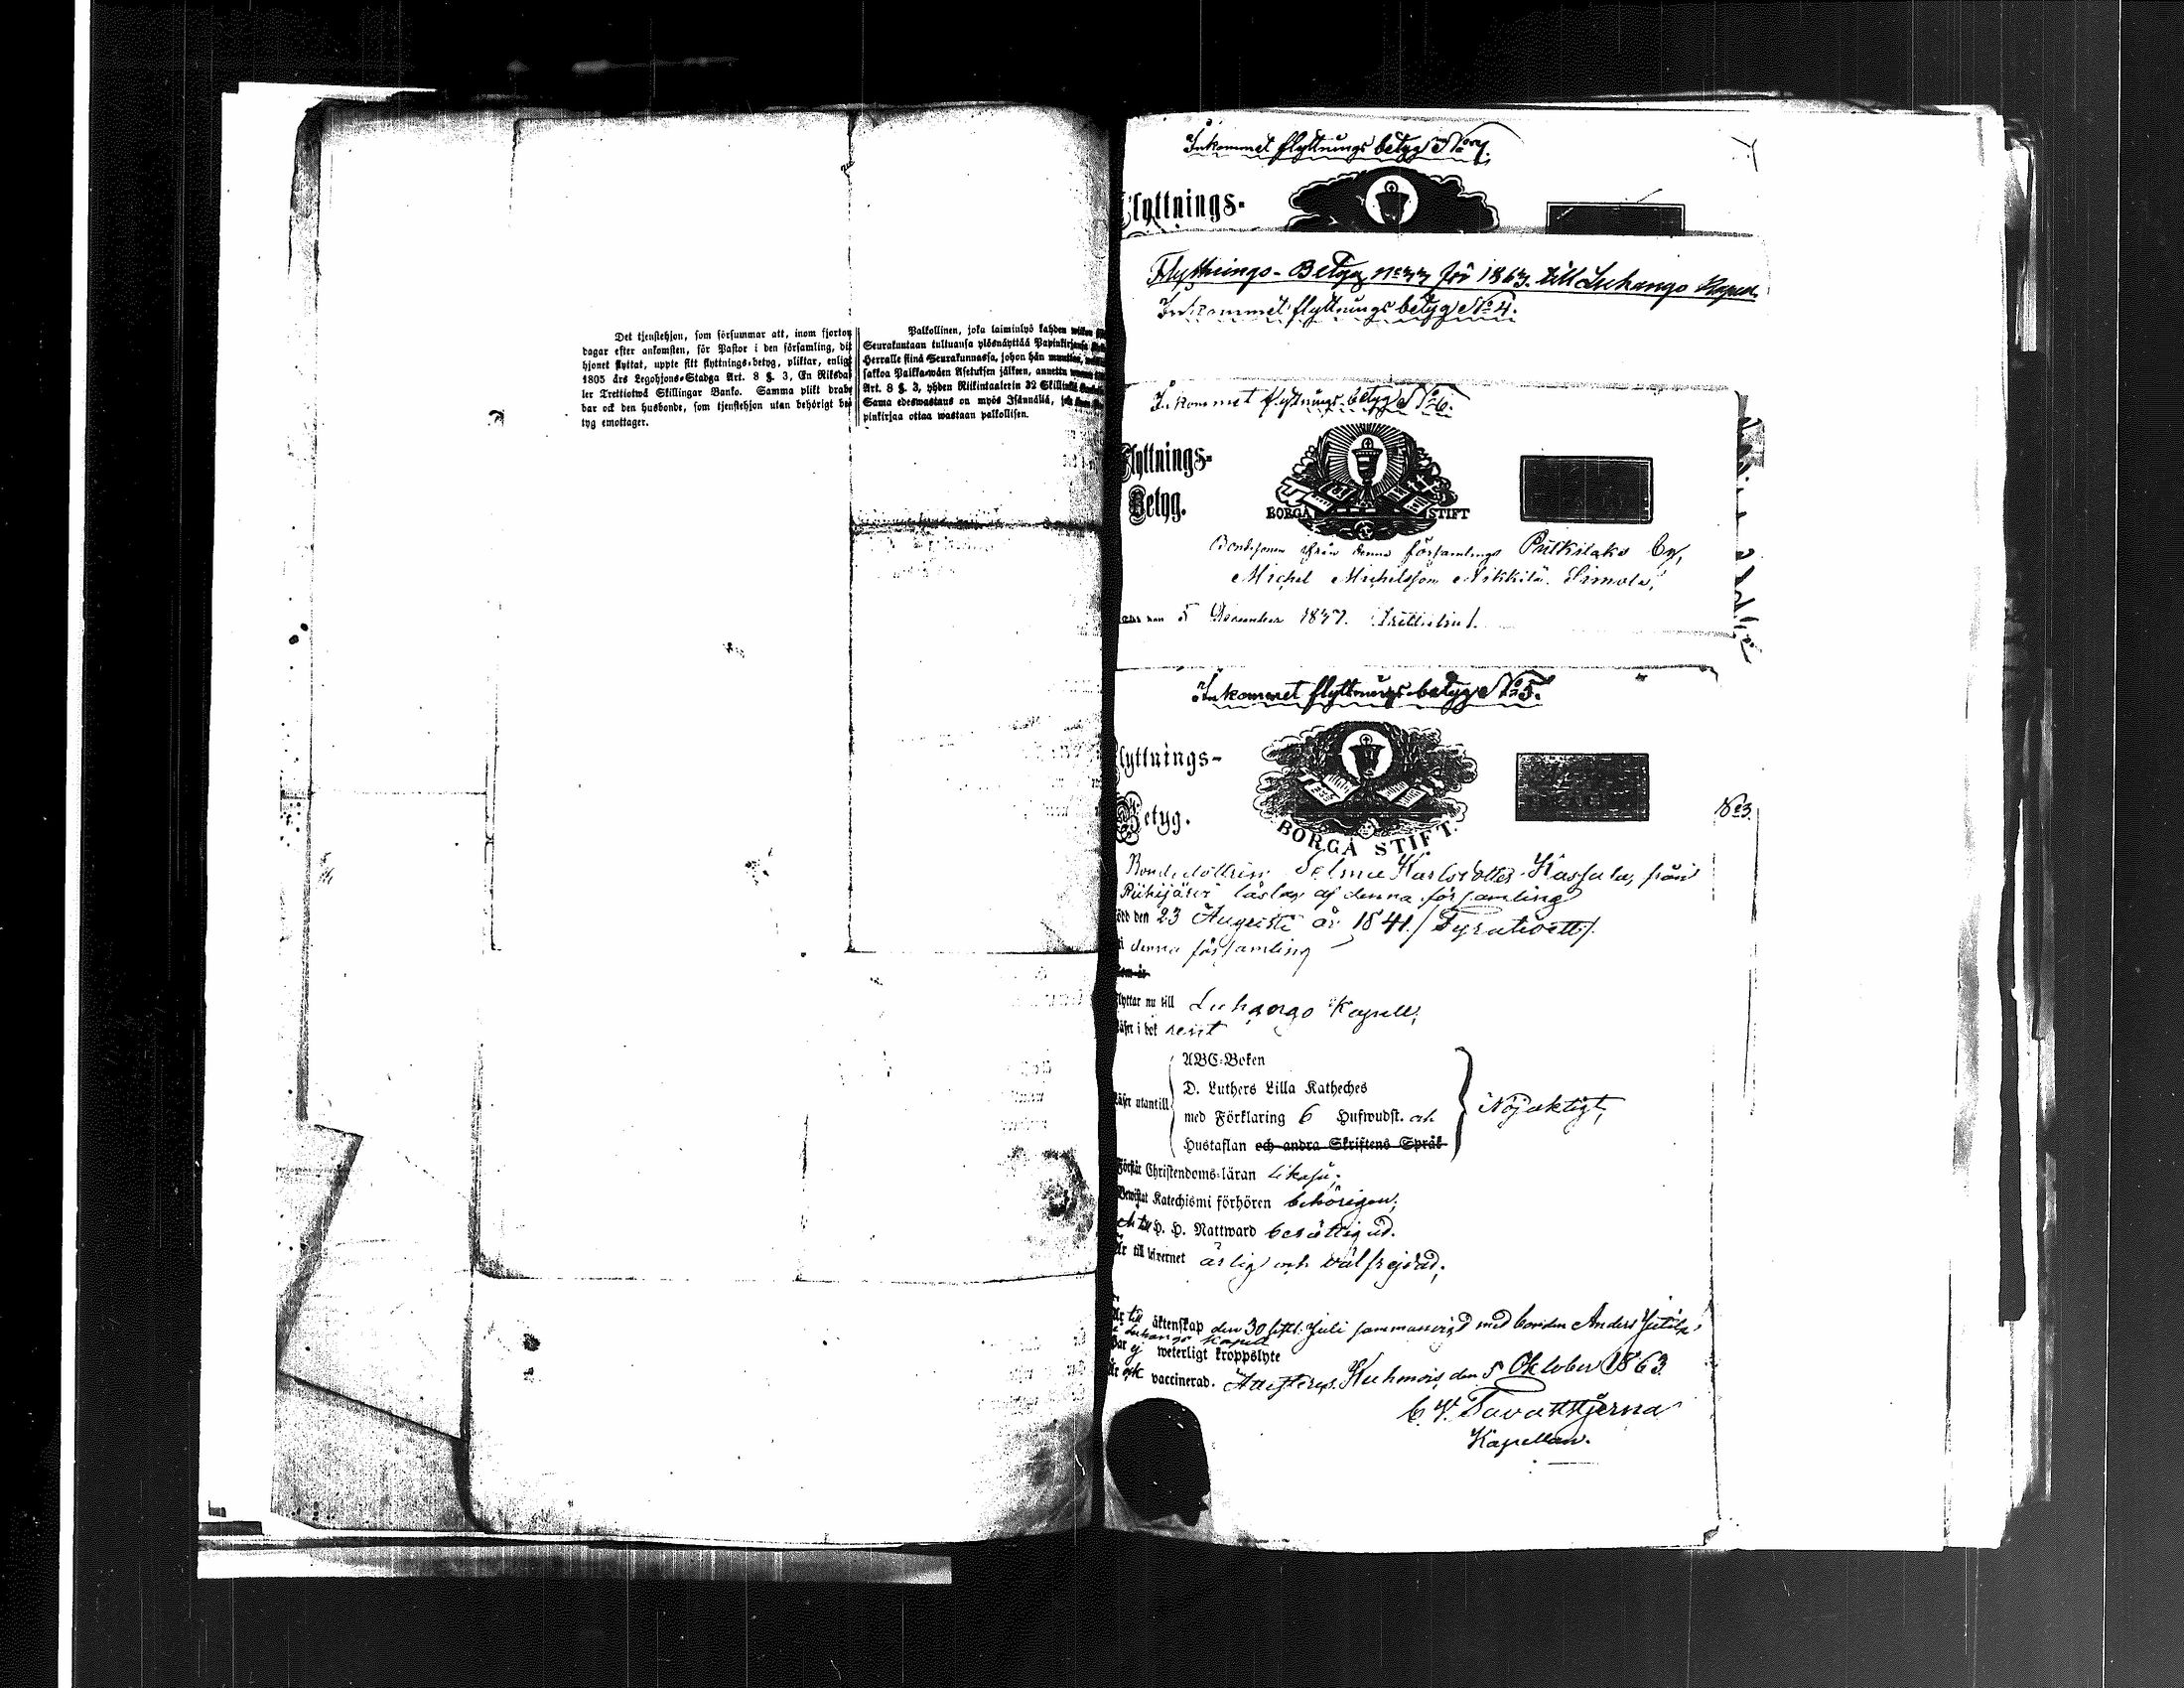 Det tjenstehjon, som försummar att, inom fjorton
dagar efter ankomsten, för Pastor i den församling, dit
hjonet flyttat, uppte sitt flyttnings-betyg, pliktar, enligt
1805 års Legohjons-Stadga Art. 8 §. 3, En Riksda
ler Trettiotwå Skillingar Banko. Samma plikt drab
bar ock den husbonde, som tjenstehjon utan behörigt be
tyg emottager.
Palkollinen, joka laiminlyö kahden
Seurakuntaan tultuansa ylösnäyttää Papinkirjansa
Herralle siinä Seurakunnassa, johon hän muuttaa,
sakkoa Palkka-wäen Asetuksen jälken, annettu
Art. 8 §. 3, yhden Riikintaalerin 32 Skillinkiä
Sama edeswastaus on myös Isännällä,
pinkirjaa ottaa wastaan palkollisen.
Inkommet flyttnings betyg No 7.
Flyttnings-
Flyttnings-Betyg för 1863. till Luhango
Inkommet flyttnings betyg No 4.
Inkommet flyttnings betyg No 6.
Flyttnings-
Betyg.
BORGÅ STIFT
från denna församlings by,
Michel Michelsson Nikkilä Simola,
5 December 1837.
Inkommet flyttnings betyg No 5.
Flyttnings-
Betyg.
BORGÅ STIFT.
No 3.
Bondedottren Selma Karlsdotter Kassala, från
läslag af denna församling
född den 23 Augusti år 1841./
i denna församling
Som är
flyttar nu till Luhango Kapell;
Läser i bok rent
ABC-Boken
D. Luthers Lilla Katheches
Läser utantill med Förklaring 6 Hufwudst. och Nöjaktigt,
Hustaflan och andra Skriftens Språk
Förstår Christendoms-läran likaså;
Bewistat Katechismi förhören behörigen;
H. H. Nattward berättigad.
Är till wandel ärlig och välfrejdad;
Är till äktenskap den 30 sistl. Juli sammanvigd med bonden Anders
i Luhango Kapell
Har ej weterligt kroppslyte
Är ock vaccinerad. Attesteras. Kuhmois den 5 Oktober 1863
C. W. Tavaststjerna
Kapellan.